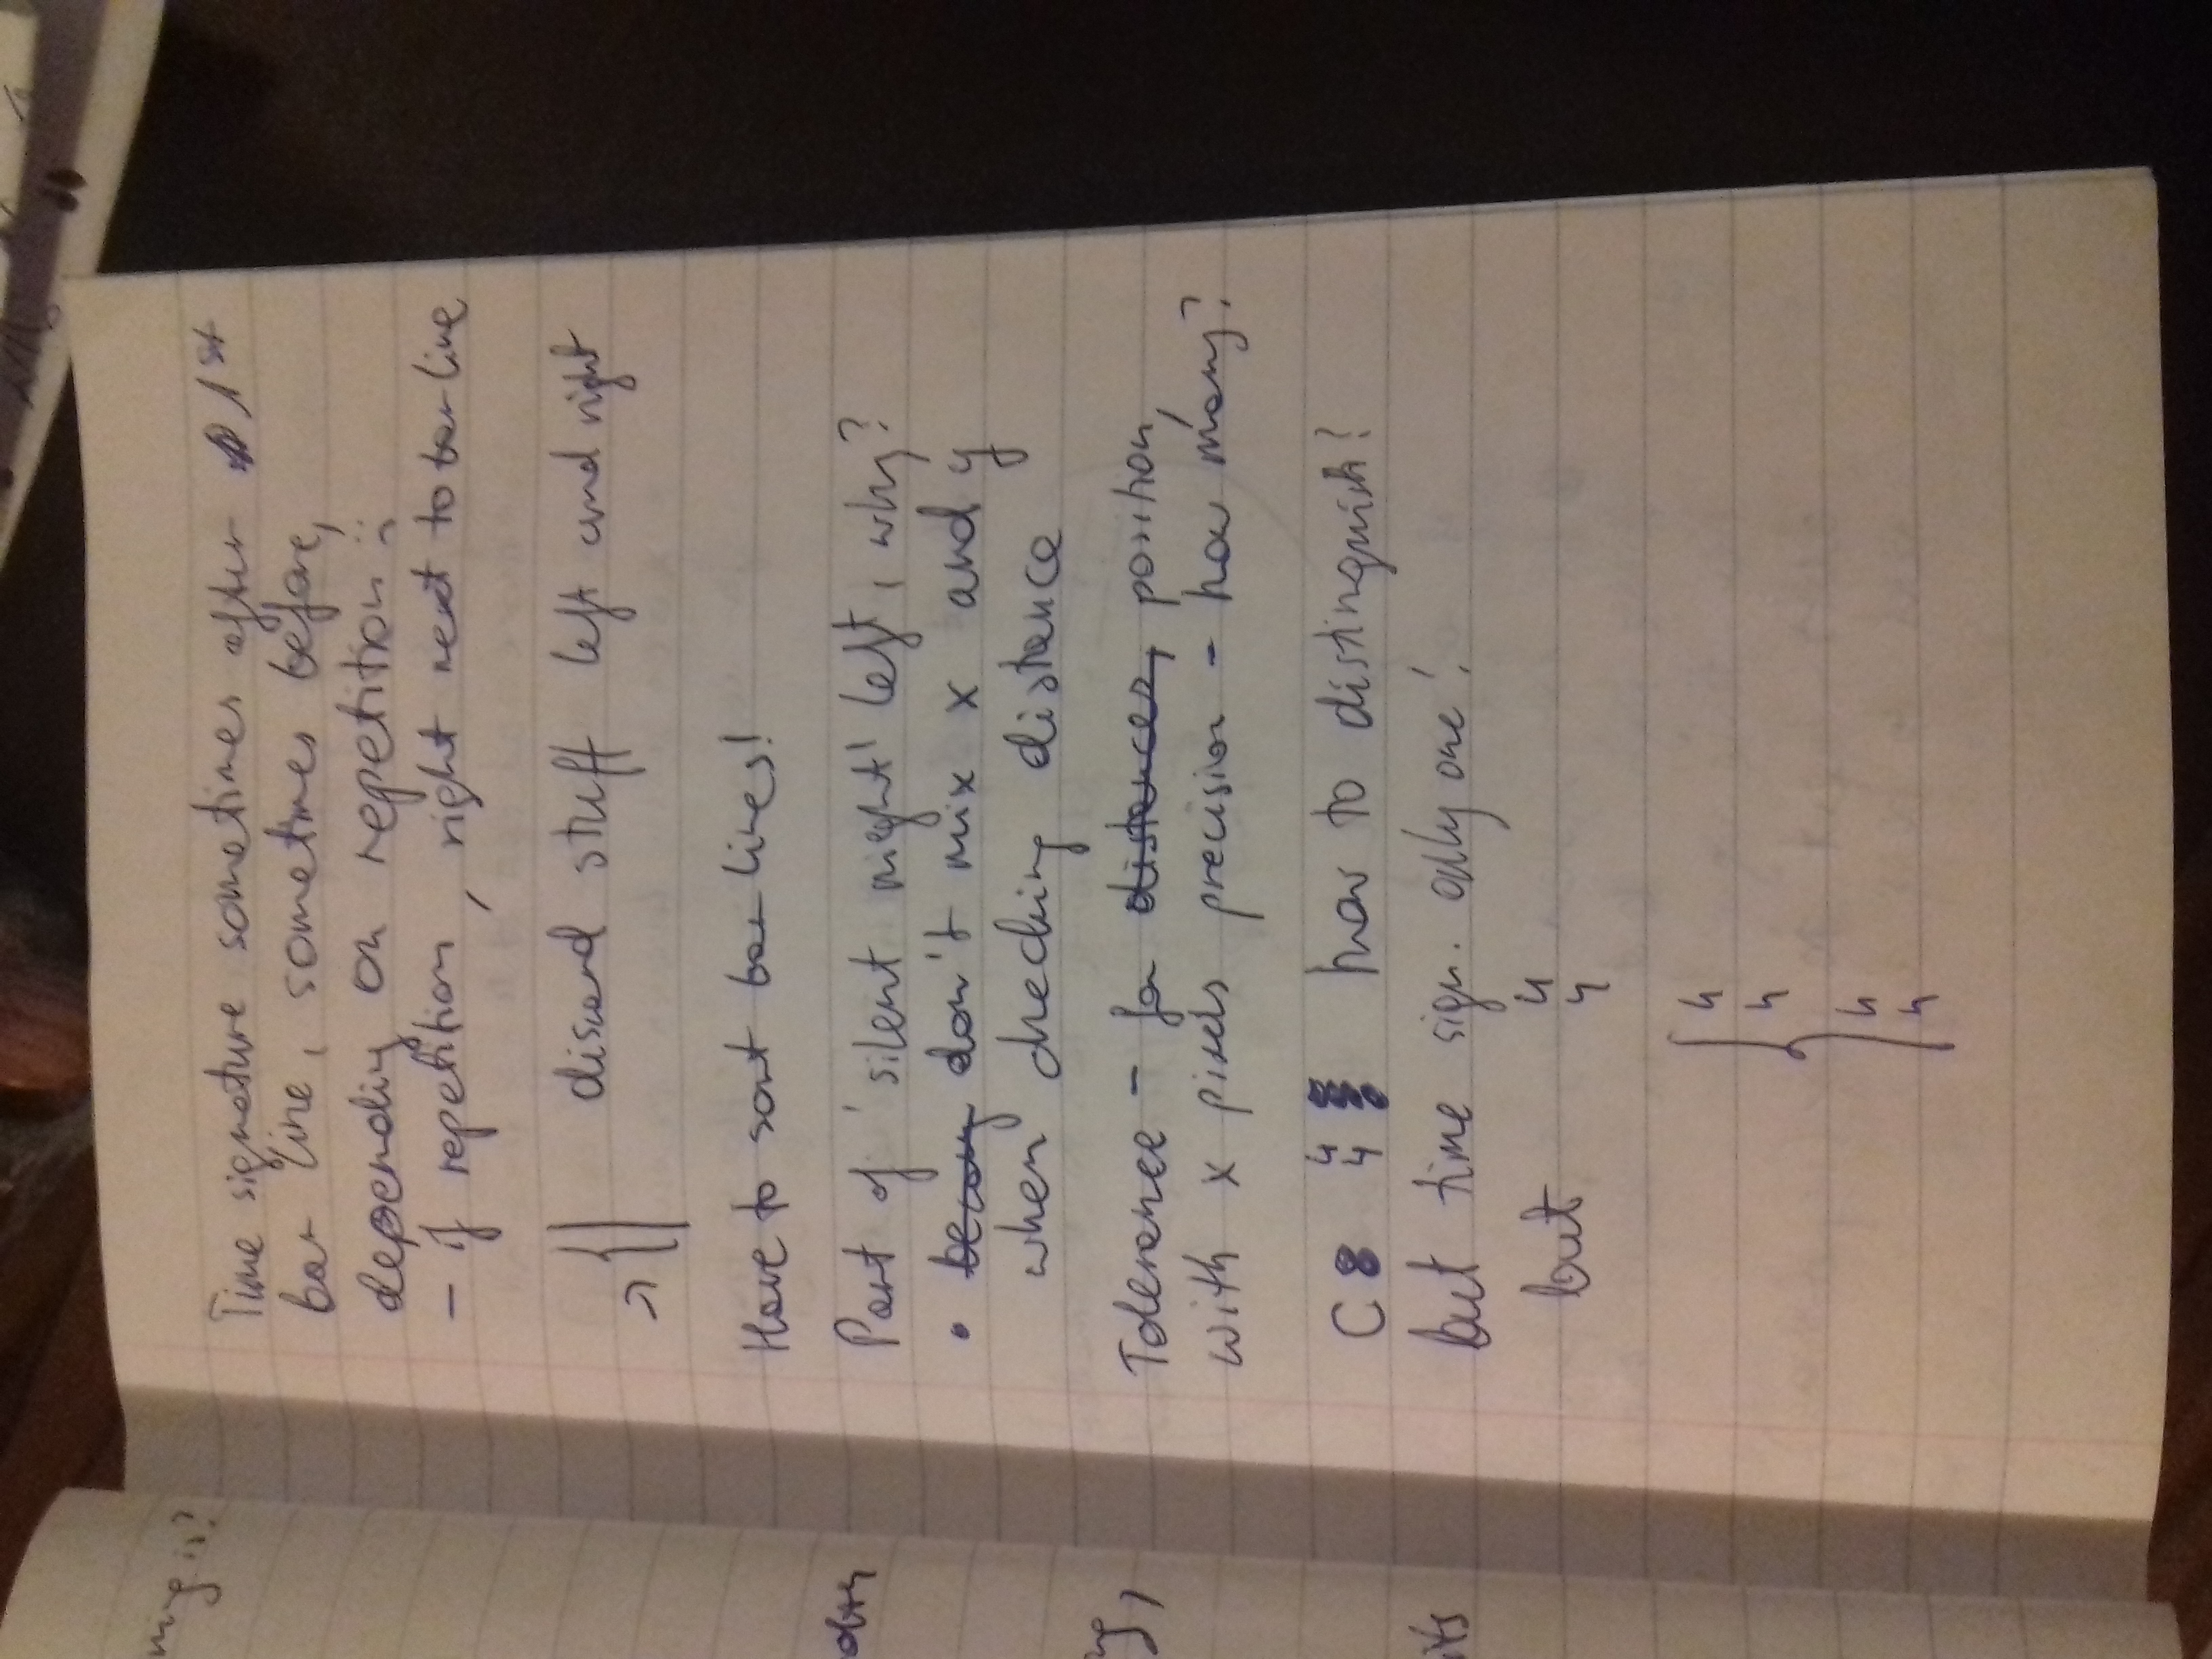 Time signature sometimes after 1st
bar line, sometimes before,
depending on repetition :
- if repetition, right next to bar line
discard stuff left and right
Have to sort bar lines!
Part of 'silent night' left, why?
• don't mix x and y
when checking distance
Tolerance - for distances, position,
with x pixels precision - how many?
C 8 4 4 how to distinguish?
but time sign. only one!
but 4
4
4
4
4
4